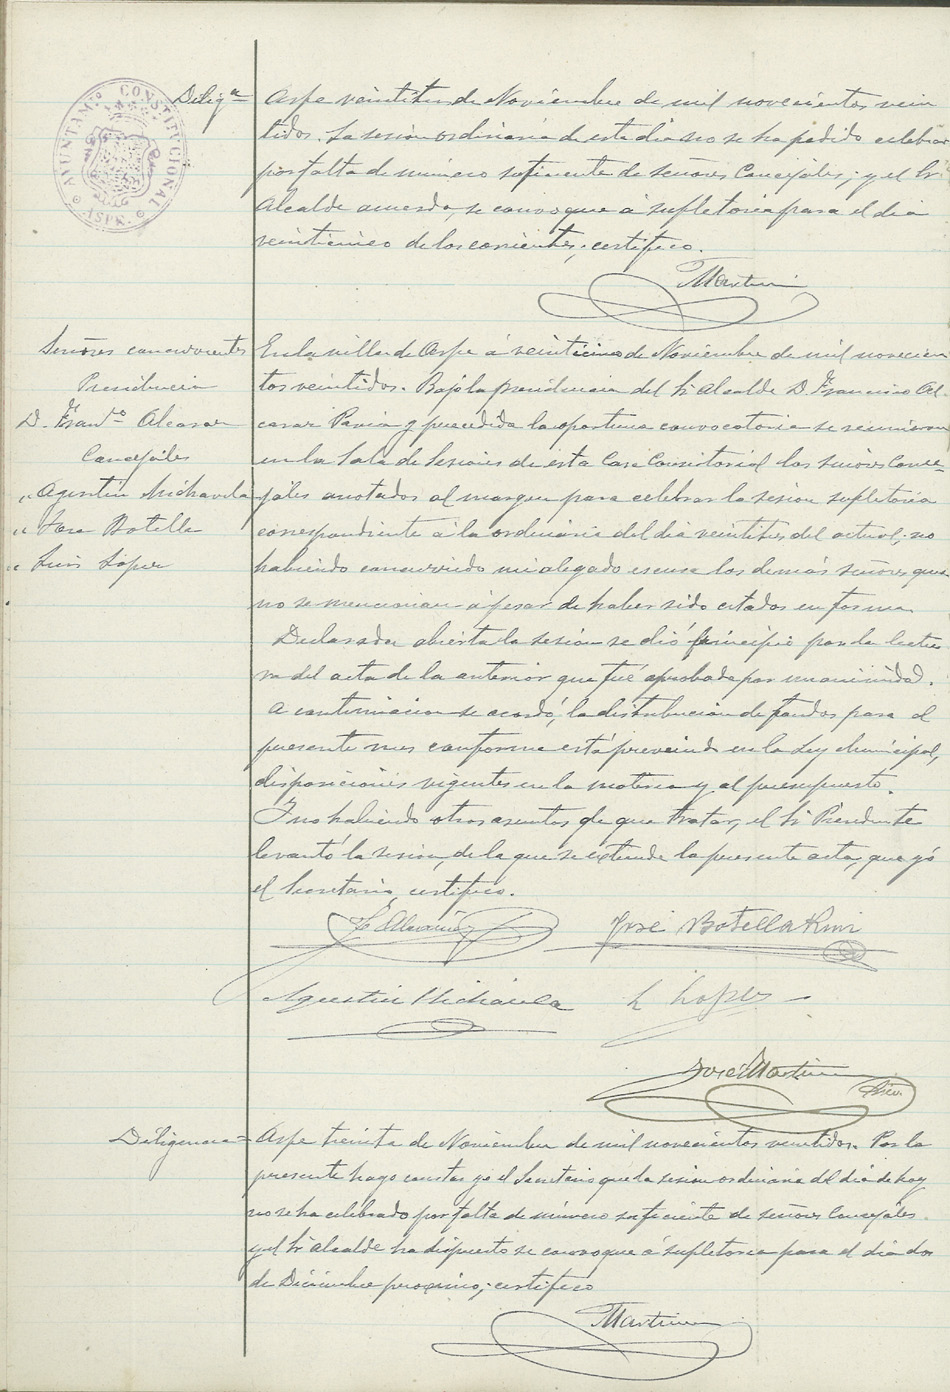 AYUNTAM.º CONSTITUCIONAL
ASPE
Diligª
Aspe veintitres de Noviembre de mil novecientos vein
tidos. La sesion ordinaria de este dia no se ha podido celebrar
por falta de número suficiente de señores Concejales; y el Sr.
Alcalde acuerda, se convoque á supletoria para el dia
veinticinco de los corrientes; certifico.
Martinez
Señores concurrentes
Presidencia
D. Franco. Alcaraz
Concejales
" Agustin Michavila
" José Botella
" Luis López
En la villa de Aspe á veinticinco de Noviembre de mil novecien
tos veintidos. Bajo la presidencia del Sr Alcalde D. Francisco Al-
caraz Pavia y precedida la oportuna convocatoria se reunieron
en la Sala de Sesiones de esta Casa Consistorial los señores Conce-
jáles anotados al margen para celebrar la sesión supletoria
correspondiente á la ordinaria del dia veintitres del actual, no
habiendo concurrido ni alegado escusa los demás señores que
no se mencionan á pesar de haber sido citados en forma
Declarada abierta la sesión se dió principio por la lectu
ra del acta de la anterior que fué aprobada por unanimidad.
A continuacion se acordó, la distribución de fondos para el
presente mes conforme está prevenido en la Ley Municipal,
disposiciones vigentes en la materia y al presupuesto.
Y no habiendo otros asuntos de que tratar, el Sr Presidente
levantó la sesion, de la que se extiende la presente acta, que yó
el Secretario, certifico.
F. Alcaraz
José Botella
Agustin Michavila
L Lopez
José Martinez
Srio.
Diligencia
Aspe treinta de Noviembre de mil novecientos veintidos. Por la
presente hago constar yo el Secretario que la sesion ordinaria del dia de hoy
no se ha celebrado por falta de número suficiente de señores Concejáles.
y el Sr Alcalde ha dispuesto se convoque á supletoria para el dia dos
de Diciembre proximo; certifico
Martinez